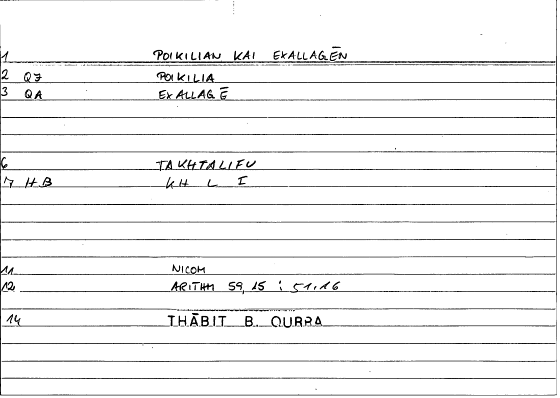 1 POIKILIAN KAI EXALLAGĒN
2 QZ POIKILIA
3 QA EXALLAGĒ
6 TAKHTALIFU
7 HB KH L I
11 NICOM
12 ARITHM 59, 15 : 51,16
14 THĀBIT B. QURRA